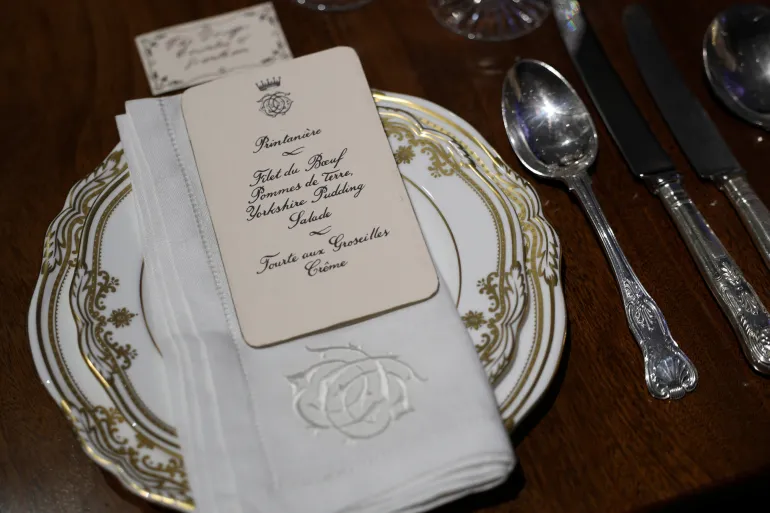 Printanière
Filet du Bœuf
Pommes de Terre,
Yorkshire Pudding
Salade
Tourte aux Groseilles
Crême